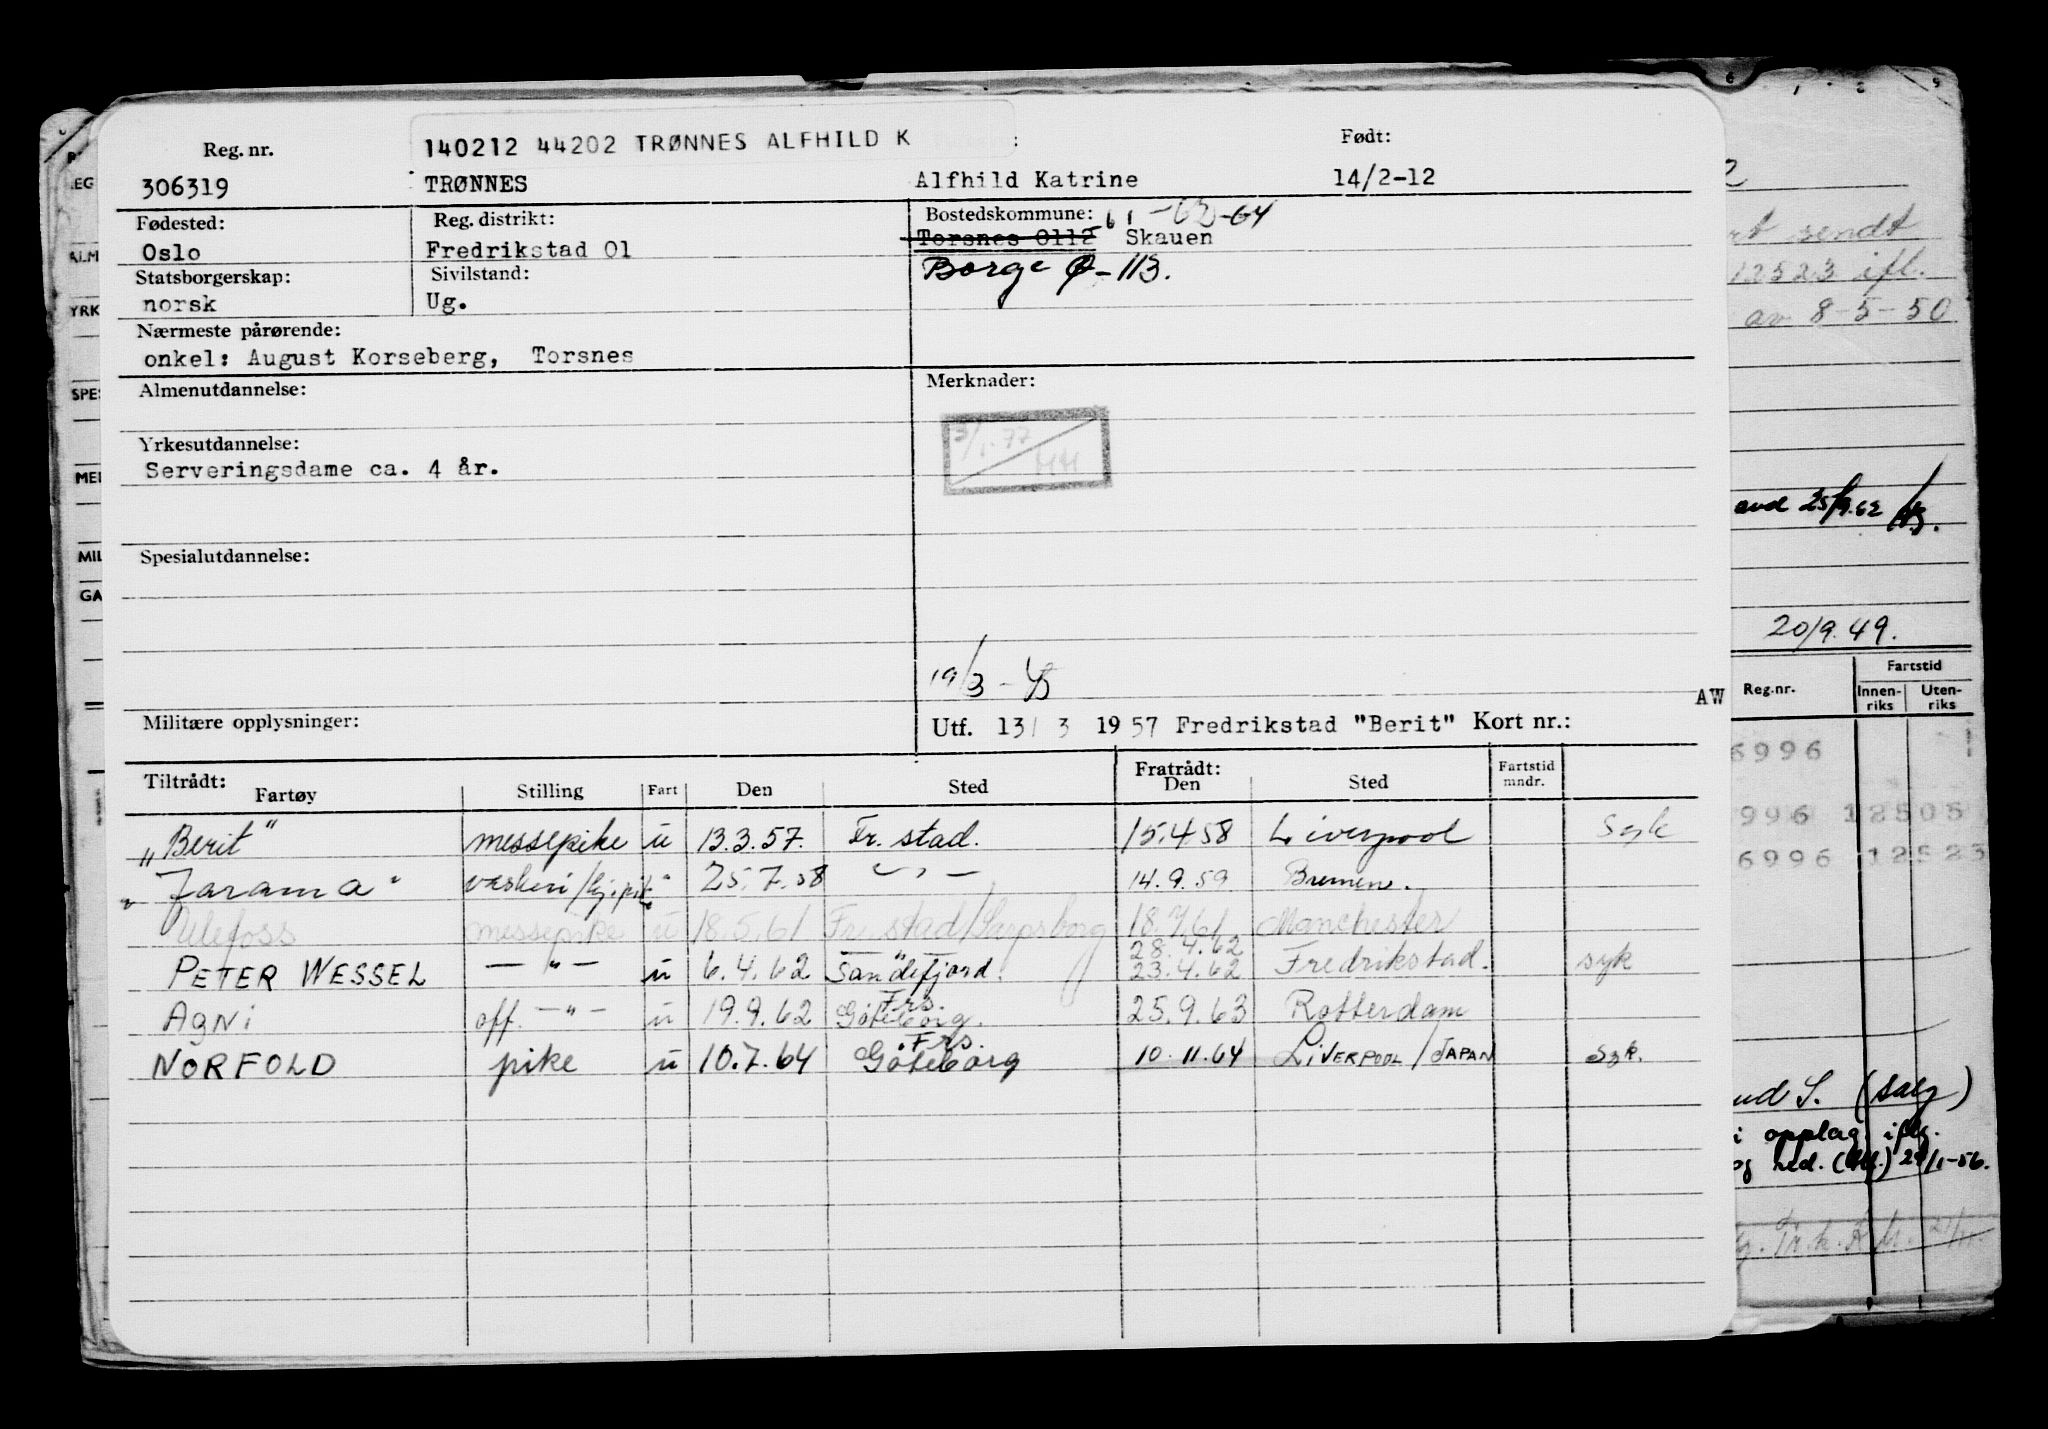 140212 44202 TRØNNES ALFHILD K
Reg. nr. Født:
306319 TRØNNES Alfhild Katrine 14/2-12
Fødested: Reg. distrikt: Bostedskommune: 61-62-64
Oslo Fredrikstad 01 Torsnes 0112 Skauen
Statsborgerskap: Sivilstand: Borge Ø-113.
norsk Ug.
Nærmeste pårørende:
onkel: August Korseberg, Torsnes
Almenutdannelse: Merknader:
3/1-77
HH
Yrkesutdannelse:
Serveringsdame ca. 4 år.
Spesialutdannelse:
19/3
AW
Militære opplysninger: Utf. 13/ 3 1957 Fredrikstad "Berit" Kort nr.:
Tiltrådt: Fratrådt:
Fartøy Stilling Fart Den Sted Den Sted Fartstid mndr.
"Berit" messepike u 13.3.57. Fr. stad. 15.4.58 Liverpool Syk
"Jarama" vaskeri/ " 25.7.58 — " — 14.9.59 Bremen.
Ulefoss messepike u 18.5.61 Fr. stad/Sarpsborg 18.7.61 Manchester
28.4.62
PETER WESSEL — " — u 6.4.62 Sandefjord. 23.4.62 Fredrikstad. syk
Frs.
Agni off. — " — u 19.9.62 Göteborg. 25.9.63 Rotterdam
Frs.
NORFOLD pike u 10.7.64 Göteborg 10.11.64 LIVERPOOL/JAPAN Syk.
2
sendt
12523 ifl.
av 8-5-50
and 25/9.62
20/9.49.
Reg.nr. Fartstid
Innenriks Utenriks
6996
996 12505
6996 12523
ud S. (salg)
i opplag iflg.
og red. 1-56.
REG
ALM
YRK
SPES
MEI
MIL
GA